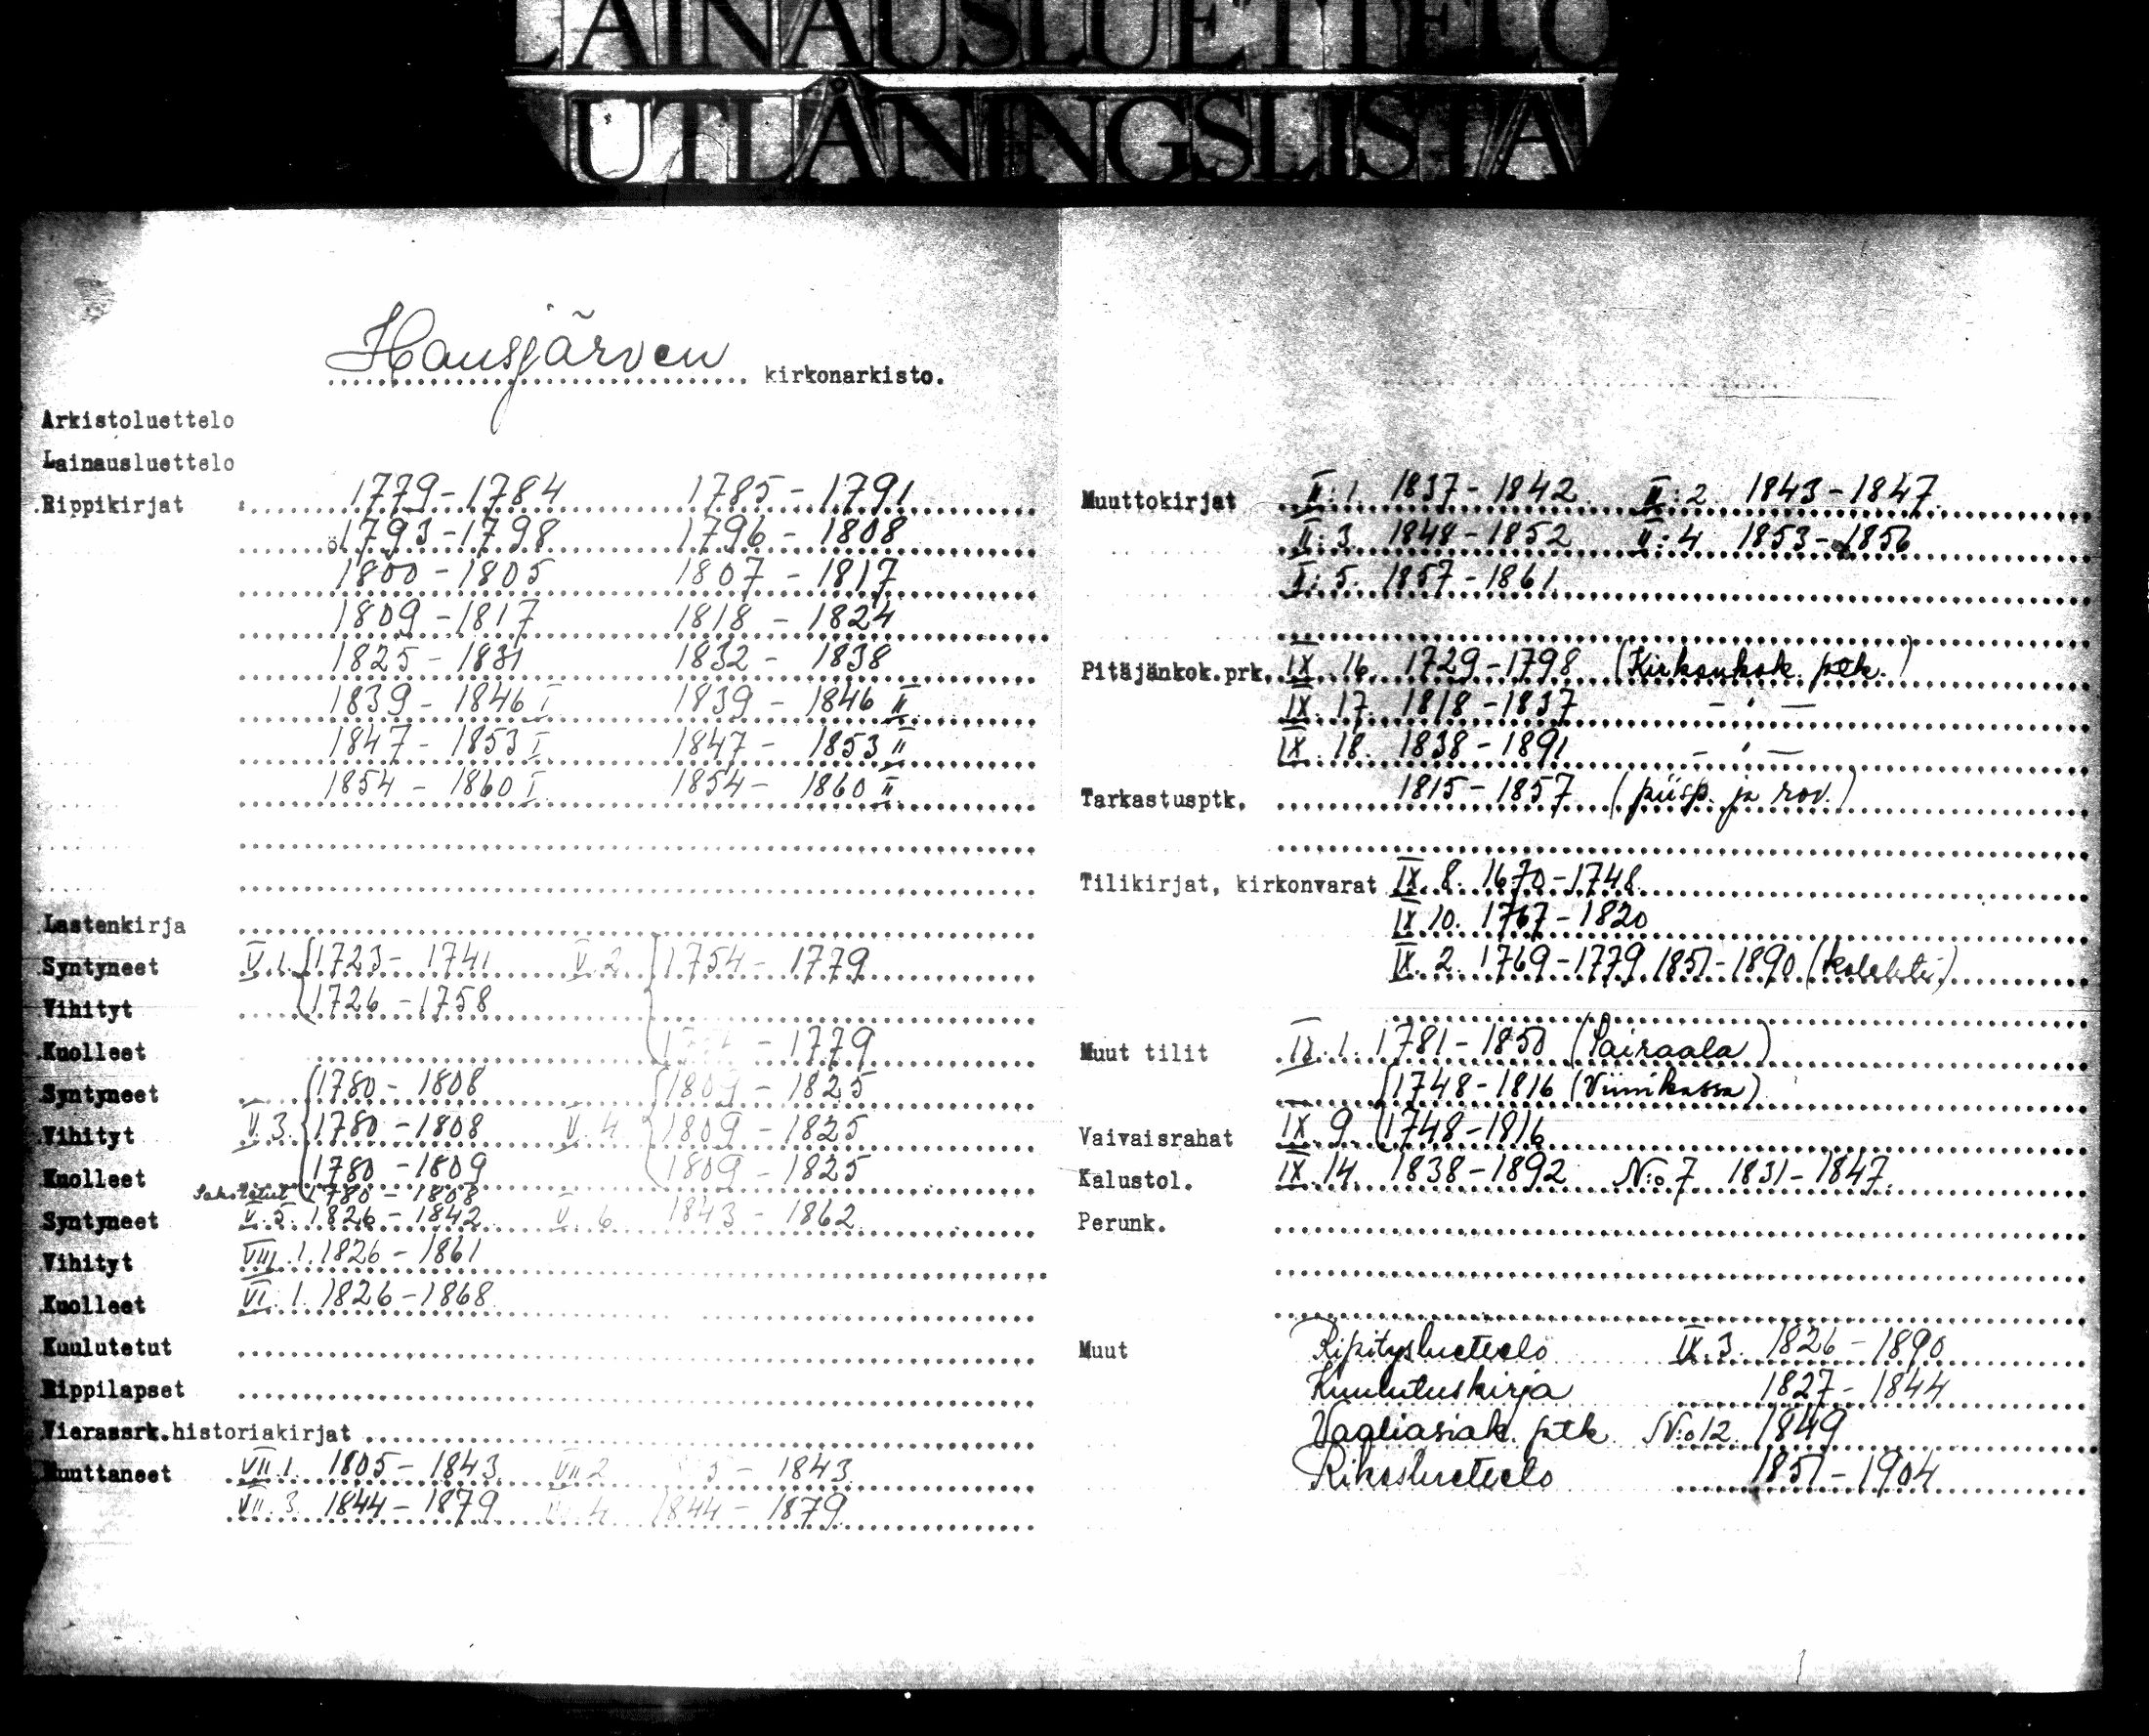 LAINAUSLUETTELO
UTLÅNINGSLISTA
Hausjärven kirkonarkisto.
Arkistoluettelo
Lainausluettelo
Rippikirjat 1779-1784 1785-1791
ö1793-1798 1796-1808
1800-1805 1807-1817
1809-1817 1818-1824
1825-1831 1832-1838
1839-1846 I 1839-1846 II
1847-1853 I 1847-1853 II
1854-1860 I 1854-1860 II
Lastenkirja
Syntyneet V.1. 1723-1741 V.2. 1754-1779
Vihityt 1726-1758
Kuolleet -1779
Syntyneet 1780-1808 1809-1825
Vihityt V.3. 1780-1808 V.4 1809-1825
Kuolleet 1780-1809 1809-1825
1780-1808
Syntyneet V.5. 1826-1842 V.6 1843-1862
Vihityt VIII.1. 1826-1861
Kuolleet VI.1. 1826-1868
Kuulutetut
Rippilapset
Vierassrk.historiakirjat
Muuttaneet VII.1. 1805-1843 VII.2 -1843
VII.3. 1844-1879 4 1844-1879
Muuttokirjat II:1. 1837-1842 II:2. 1843-1847
II:3. 1848-1852 II:4 1853-1856
II:5. 1857-1861
Pitäjänkok.prk. IX.16. 1729-1798 (Kirkonkok. ptk.)
IX.17. 1818-1837 - " -
IX.18. 1838-1891 - " -
Tarkastusptk. 1815-1857 (piisp. ja rov.)
Tilikirjat, kirkonvarat IX.8. 1670-1748
IX 10. 1767-1820
IX.2. 1769-1779 1851-1890 (kolehti)
Muut tilit IX.1. 1781-1850 (Sairaala)
1748-1816 (Viinikassa)
Vaivaisrahat IX.9. 1748-1816
Kalustol. IX.14. 1838-1892 N:o 7 1831-1847
Perunk.
Muut Ripitysluettelo IX.3. 1826-1890
Kuulutuskirja 1827-1844
Vaaliasiak. ptk. N:o 12. 1849
Rikosluettelo 1851-1904